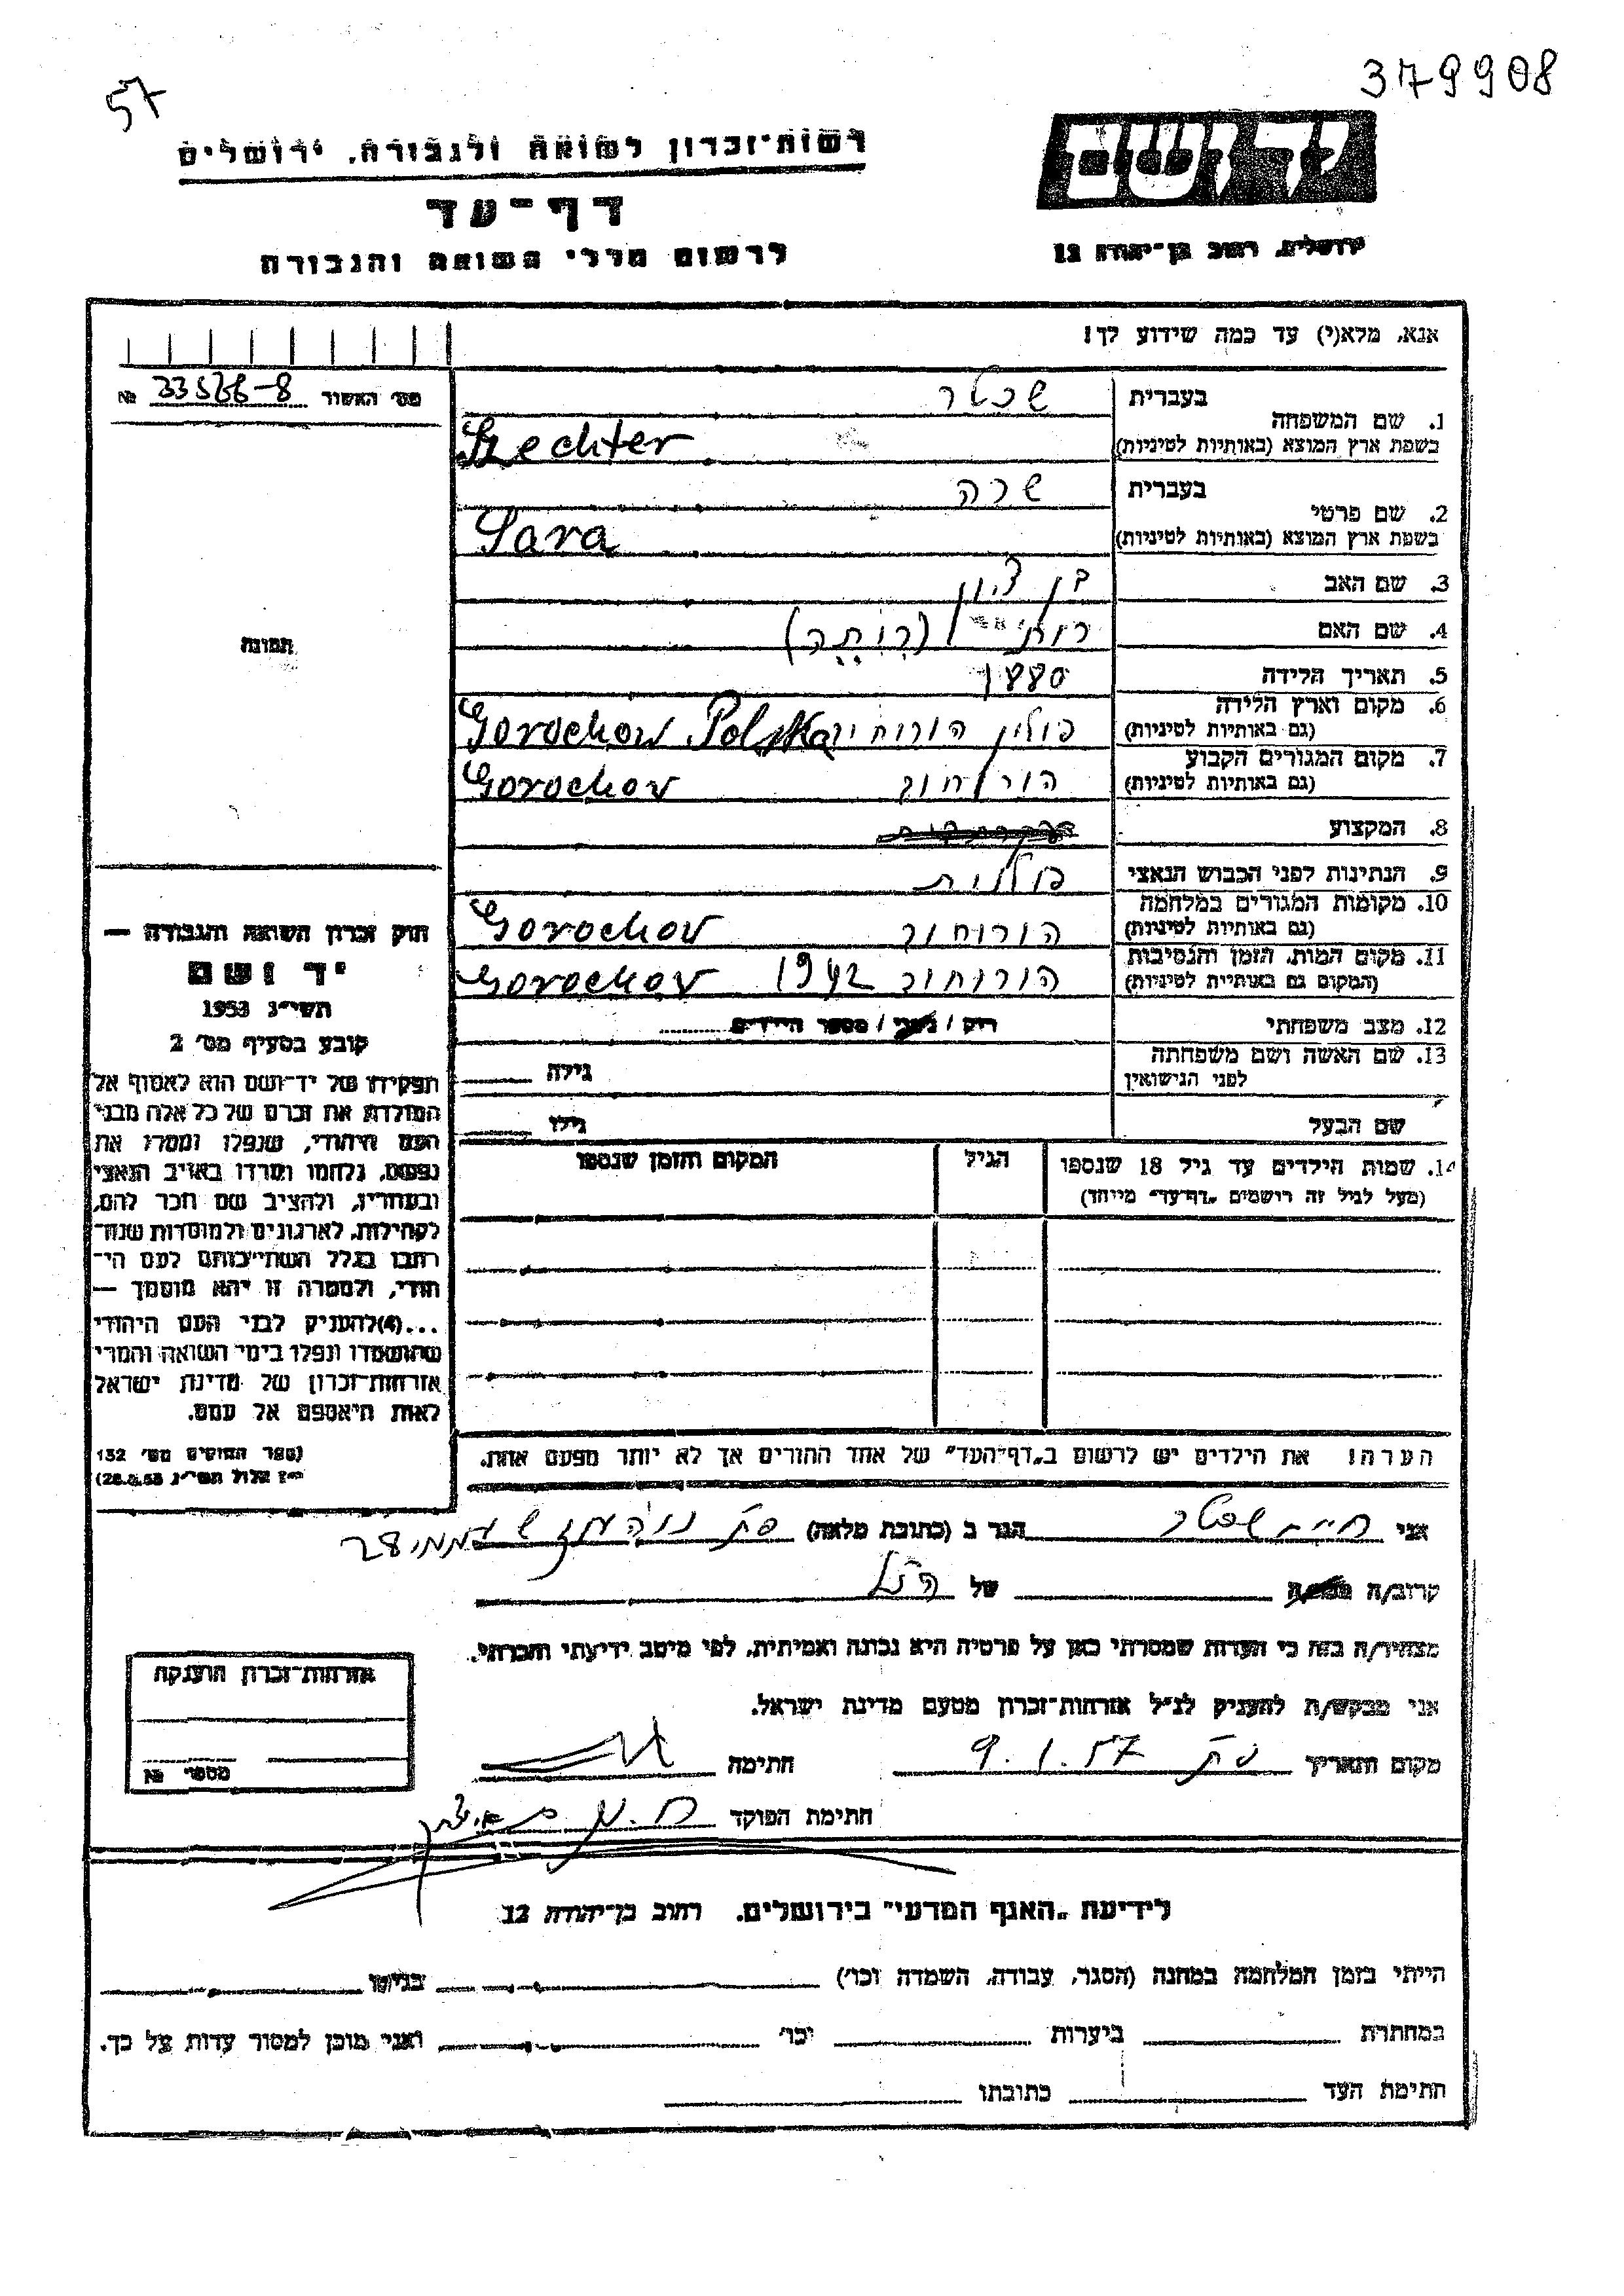 57
379908
רשות־זכרון לשואה ולגבורה, ירושלים
יד ושם
דף־עד
ירושלים, רחוב בן־יהודה 12
לרשום חללי השואה והגבורה
אנא, מלא(י) עד כמה שידוע לך!
מס׳ האשור № 33566-8
בעברית שכטר
1. שם המשפחה
בשפת ארץ המוצא (באותיות לטיניות) Szechter
בעברית שרה
2. שם פרטי
בשפת ארץ המוצא (באותיות לטיניות) Sara
3. שם האב בן ציון
4. שם האם
תמונה
5. תאריך הלידה 1880
6. מקום וארץ הלידה
(גם באותיות לטיניות) פולין הורוחוב Gorochow Polska
7. מקום המגורים הקבוע
(גם באותיות לטיניות) הורוחוב Gorochov
8. המקצוע
9. הנתינות לפני הכבוש הנאצי פולנית
10. מקומות המגורים במלחמה
(גם באותיות לטיניות) הורוחוב Gorochov
11. מקום המות, הזמן והנסיבות
(המקום גם באותיות לטיניות) הורוחוב 1942 Gorochov
12. מצב משפחתי רוק / נשוי / מספר הילדים
13. שם האשה ושם משפחתה
לפני הנישואין גילה
שם הבעל גילו
14. שמות הילדים עד גיל 18 שנספו הגיל המקום והזמן שנספו
(מעל לגיל זה רושמים „דף־עד״ מיוחד)
חוק זכרון השואה והגבורה —
יד ושם
תשי״ג 1953
קובע בסעיף מס׳ 2
תפקידו של יד־ושם הוא לאסוף אל
המולדת את זכרם של כל אלה מבני
העם היהודי, שנפלו ומסרו את
נפשם, נלחמו ומרדו באויב הנאצי
ובעוזריו, ולהציב שם וזכר להם,
לקהילות, לארגונים ולמוסדות שנח־
רבו בגלל השתייכותם לעם הי־
הודי, ולמטרה זו יהא מוסמך —
...(4)להעניק לבני העם היהודי
שהושמדו ונפלו בימי השואה והמרי
אזרחות־זכרון של מדינת ישראל
לאות היאספם אל עמם.
(ספר החוקים מס׳ 132
י״ז אלול תשי״ג 28.8.53)
הערה! את הילדים יש לרשום ב„דף־העד״ של אחד ההורים אך לא יותר מפעם אחת.
אני שכטר הגר ב (כתובת מלאה) 28
קרוב/ה של הנ״ל
מצהיר/ה בזה כי העדות שמסרתי כאן על פרטיה היא נכונה ואמיתית, לפי מיטב ידיעתי והכרתי.
אני מבקש/ת להעניק לנ״ל אזרחות־זכרון מטעם מדינת ישראל.
מקום ותאריך 9.1.57 חתימה
חתימת הפוקד
אזרחות־זכרון הוענקה
מספרי №
לידיעת „האגף המדעי״ בירושלים, רחוב בן־יהודה 12
הייתי בזמן המלחמה במחנה (הסגר, עבודה, השמדה וכו׳) בגיטו
במחתרת ביערות וכו׳ ואני מוכן למסור עדות על כך.
חתימת העד כתובתו